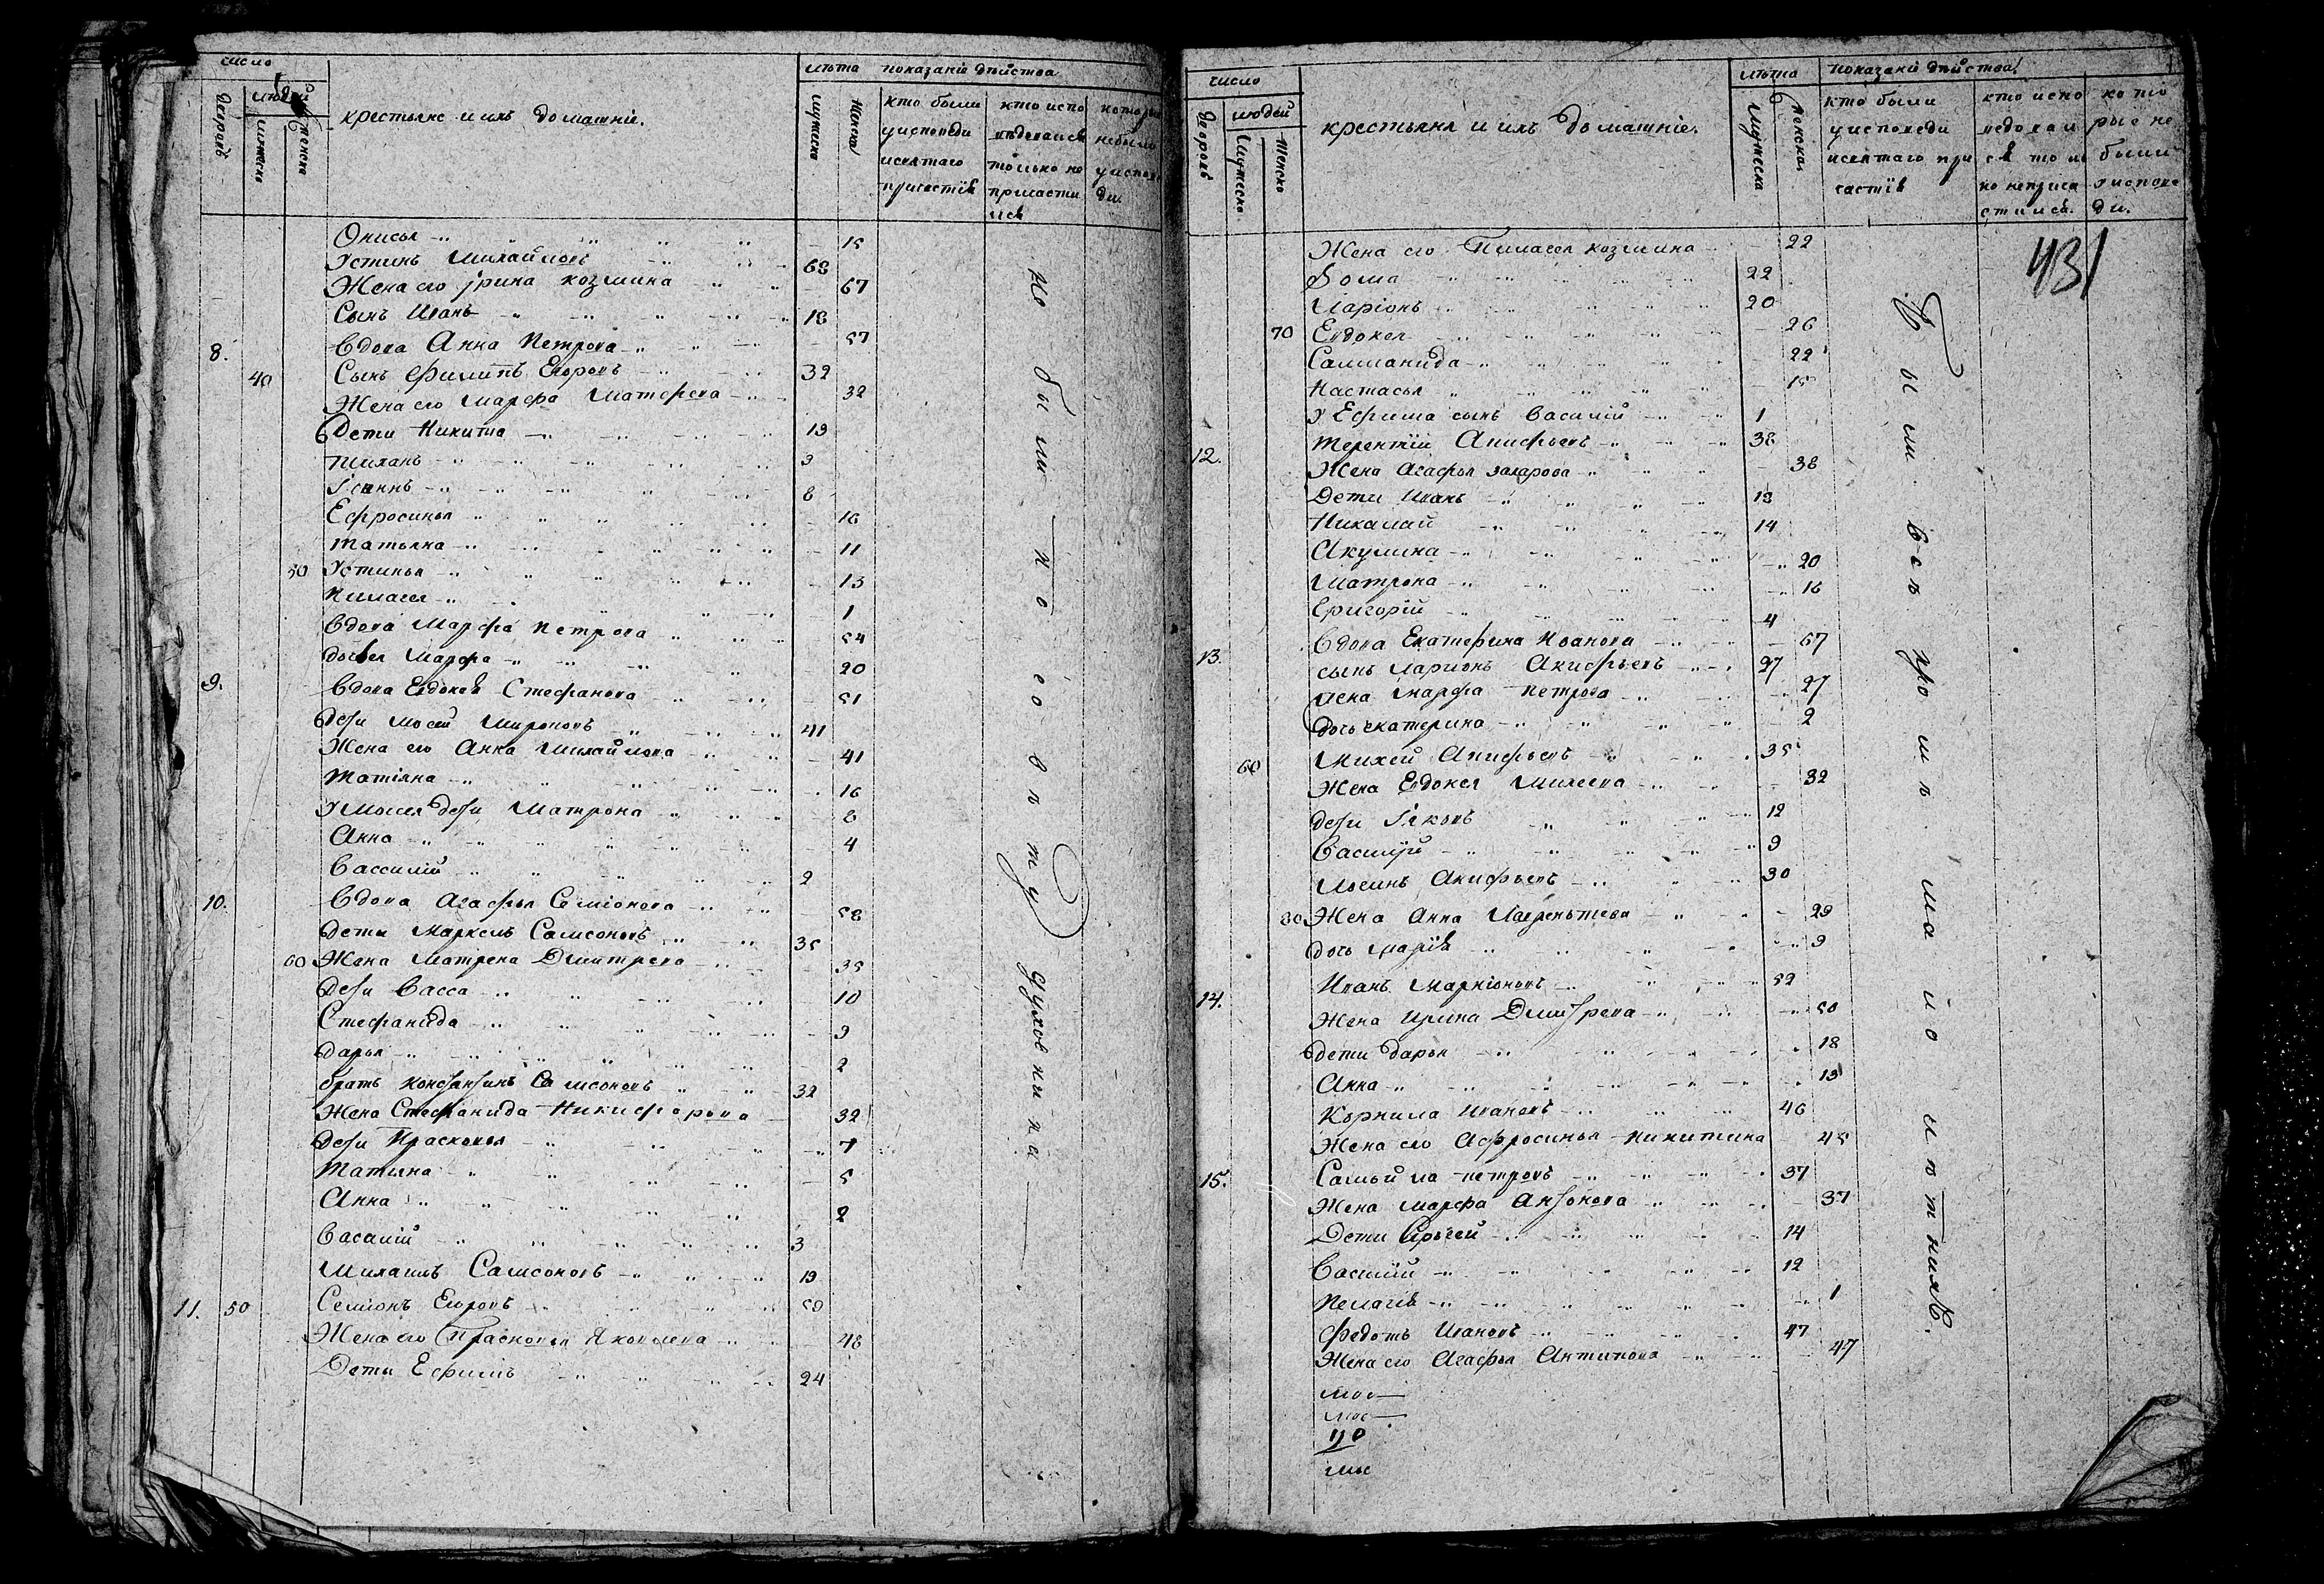 число
людей
дворовъ
мужеско
женско
крестьяне и ихъ домашніе.
лѣта показаніе дѣйства
мужеска
женска
кто были
у исповеди
и святаго
причастія
кто испо
ведовался
только не
причасти
лся
которые
не были
у испове
ди.
Онисья 15
Устинъ Михайловъ 68
Жена его Ірина козмина 67
Сынъ Иванъ 18
8. Вдова Анна Петрова 57
40 Сынъ Филиппъ Егоровъ 32
Жена его Марфа Матфеева 32
Дети Никита 13
3
8
Ефросинья 16
Татьяна 11
50 Устинья 13
Пелагея 1
Вдова Марфа Петрова 54
дочь Марфа 20
9. Вдова Евдокея Стефанова 51
Дети Мосей Мироновъ 41
Жена его Анна Михайлова 41
Татіяна 16
У Мосея дети Матрона 8
Анна 4
Вассилій 2
10. Вдова Агафья Семіонова 58
Дети Маркелъ Самсоновъ 35
60 Жена Матрена Дмитрева 35
Дети Васса 10
Стефанида 9
Дарья 2
братъ Константинъ Самсоновъ 32
Жена Стефанида Никифорова 32
Дети Прасковья 7
Татьяна 5
Анна 2
Василій 3
Михаилъ Самсоновъ 19
11. 50 Семіонъ Егоровъ 50
Жена его Прасковья Яковлева 48
Дети Ефимъ 24
не были по
духовника
число
людей
дворовъ
мужеско
женско
крестьяня и ихъ домашніе.
лѣта показаніе дѣйства
мужеска
женска
кто были
у исповеди
и святаго при
частія
кто испо
ведовал
ся то ль
ко неприча
стился.
кото
рые не
были
у испове
ди.
431
Жена его Пелагея козмина 22
Фома 22
Ларіонъ 20
70 Евдокея 26
Саламанида 22
Настасья 15
У Ефима сынъ Василій 1
12. Терентій Акифьевъ 38
Жена Агафья Захарова 38
Дети Иванъ 13
Никалай 14
Акулина 20
Матрона 16
Григорій 4
13. Вдова Екатерина Иванова 67
сынъ Ларионъ Акифьевъ 27
жена Марфа Петрова 27
дочь екатерина 2
Михей Акифьевъ 35
60 Жена Евдокея Михеева 32
дети Яковъ 12
Василій 9
Акифьевъ 30
80 Жена Анна Лаврентева 29
дочь Марія 9
14. Иванъ Маркіоновъ 52
Жена Ирина Дмитрева 50
Дети Дарья 18
Анна 13
Корнила Ивановъ 46
Жена его Афросинья Никитина 45
15. Самойла петровъ 37
Жена Марфа Антонова 37
Дети Сергей 14
Василій 12
Пелагея 1
Федотъ Ивановъ 47
Жена его Агафья Антипова 47
Были всѣ кромѣ малолѣтнихъ.